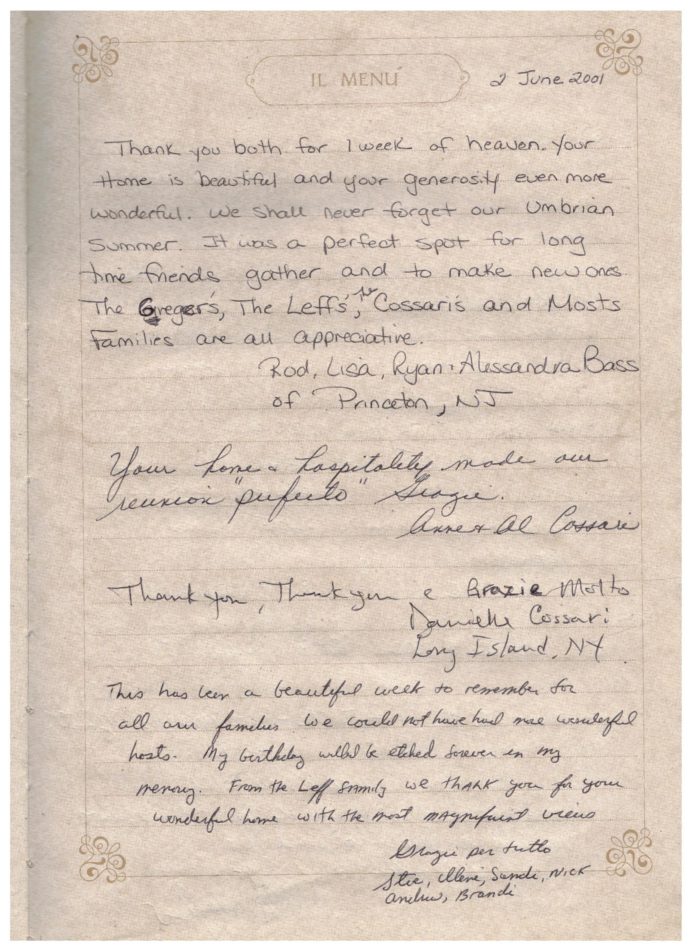 IL MENÚ
2 June 2001
Thank you both for 1 week of heaven. Your
Home is beautiful and your generosity even more
wonderful. We shall never forget our Umbrian
Summer. It was a perfect spot for long
time friends gather and to make new ones.
The Greger's, The Leff's, the Cossari's and Mosts
Families are all appreciative.
Rod, Lisa, Ryan + Alessandra Bass
of Princeton, NJ
Your home & hospitality made our
reunion "perfecto" Grazie.
Anne & Al Cossari
Thank you, Thank you e Grazie Molto
Danielle Cossari
Long Island, NY
This has been a beautiful week to remember for
all our families We could not have had more wonderful
hosts. My birthday will be etched forever in my
memory. From the Leff family we thank you for your
wonderful home with the most magnificent views
Grazie per tutto
Ilene, Sandi, Nick
Andrew, Brandi